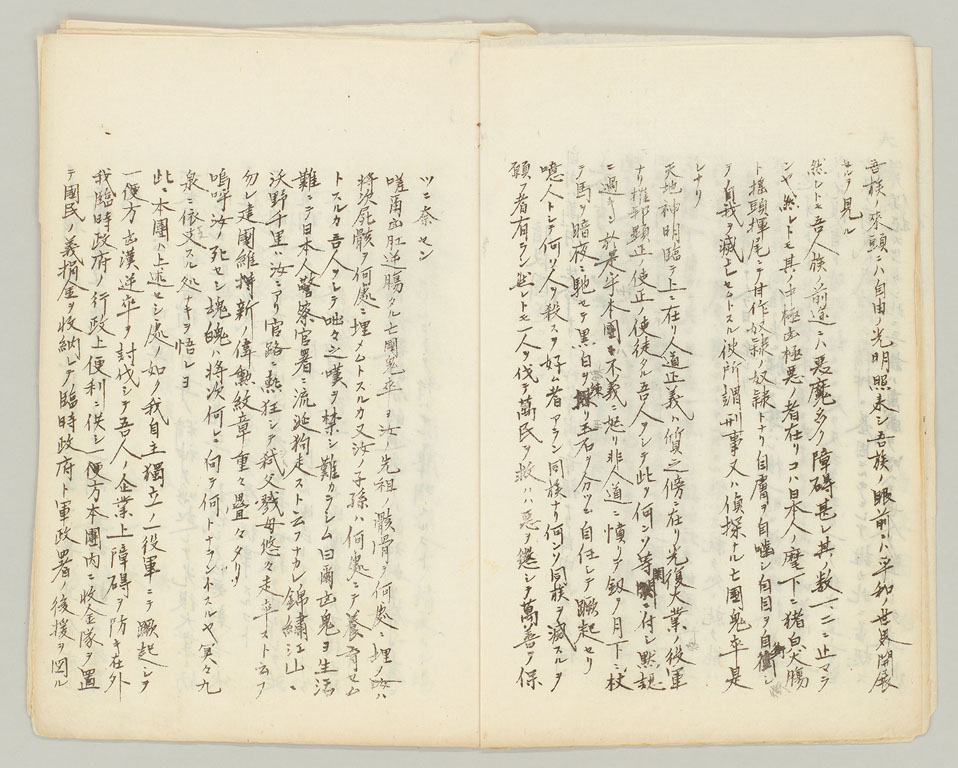 吾族ノ來頭ニハ自由ノ光明照來シ吾族ノ眼前ニハ平和ノ世界開展
セルヲ見ル
然レトモ吾人族ノ前途ニハ惡魔多ク障碍甚シ其ノ數一二ニ止マラ
ンヤ然レトモ其ノ中極凶極惡ノ者在リコハ日本人ノ麾下ニ猪臾犬腸
ト搖頭揮尾シテ甘作奴隷ノ奴隷トナリ自膚ヲ自噛シ自目ヲ自衝シ
テ自我ヲ滅亡セントスル彼所謂刑事又ハ偵探ナル亡國鬼卒是
レナリ
天地神明臨テ上ニ在リ人道正義ハ質シテ傍ニ在リ光復大業ノ役軍
ナリ推邪顯正ノ使正ノ使徒タル吾人ヲシテ此ヲ何ンソ等閑ニ付シ默認
ニ過キン於是乎本團ハ不義ニ逆リ非人道ニ憤リテ釼ヲ月下ニ杖
テ馬ヲ暗夜ニ馳セテ黑白ヲ擇リ玉石ヲ分ツヲ自任シテ蹶起セリ
噫人トシテ何ソ人ヲ殺スヲ好ム者アラン同族ナリ何ンソ同族ヲ滅スルヲ
願フ者有ラン然レトモ一人ヲ伐テ萬民ヲ救ハハ惡ヲ懲シテ萬善ヲ保
ツニ奈セン
嗟爾凶肛逆膓タル亡國鬼卒ヲ汝ノ先祖ノ骸骨ヲ何處ニ埋メ汝ハ
將次死骸ヲ何處ニ埋メムトスルカ又汝ノ子孫ハ何處ニテ養育セム
トスルカ吾人ヲシテ咄々之嘆ヲ禁シ難カラシム曰爾凶鬼ヨ生活
難ニテ日本人警察官署ニ流涎狗走スト云フナカレ錦繡江山ニ
沃野千里ハ汝ニアリ官路ニ熱狂シテ弑父戮母悠々走卒スト云フ
勿レ建國維持新ノ偉勳紋章重々疊々タリ
嗚呼汝ノ死セシ塊魄ハ將次何レニ向テ何トナラントスルヤ冥々九
泉ニ依支スル処ナキヲ悟レヨ
此ニ本團ハ上述セシ處ノ如ク我自主獨立ノ一役軍ニテ蹶起シテ
一便方凶漢逆卒ヲ討伐シテ吾人ノ企業上障碍ヲ防キ在外
我臨時政府ノ行政上便利ニ供シ一便方本團内ニ收金隊ヲ置
テ國民ノ義捐金ヲ收納シテ臨時政府ト軍政署ノ後援ヲ図ル